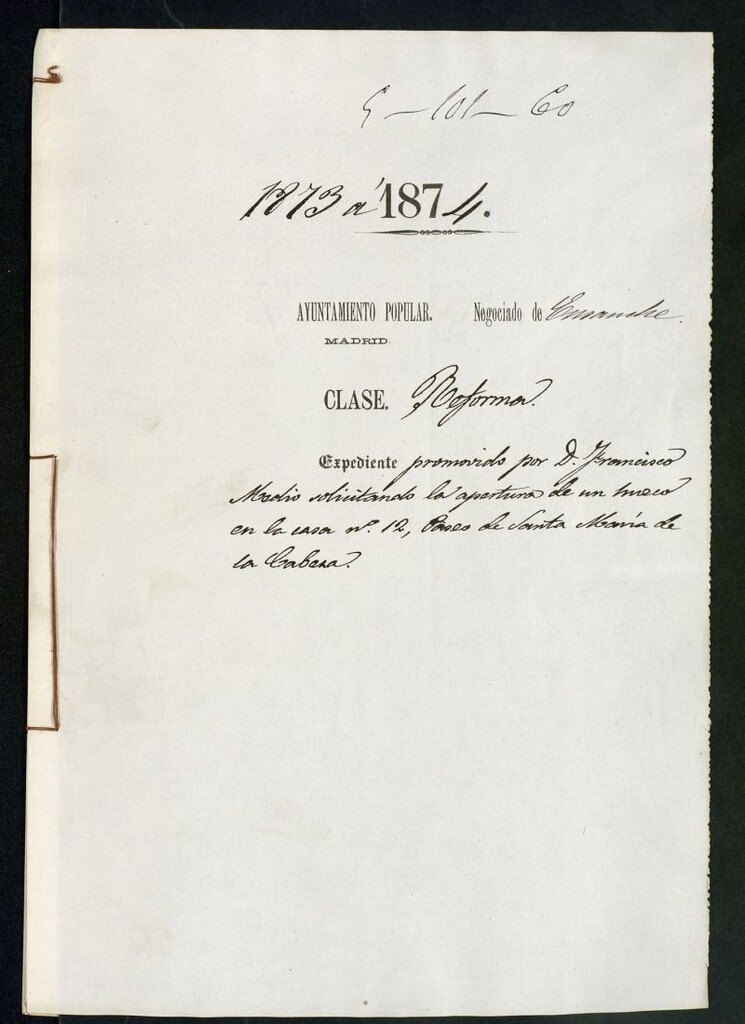 5-101-60
1873 á 1874.
AYUNTAMIENTO POPULAR. Negociado de Ensanche
MADRID.
CLASE. Reforma.
Expediente promovido por D. Francisco
Medio solicitando la apertura de un hueco
en la casa nº. 12, Paseo de Santa María de
la Cabeza.